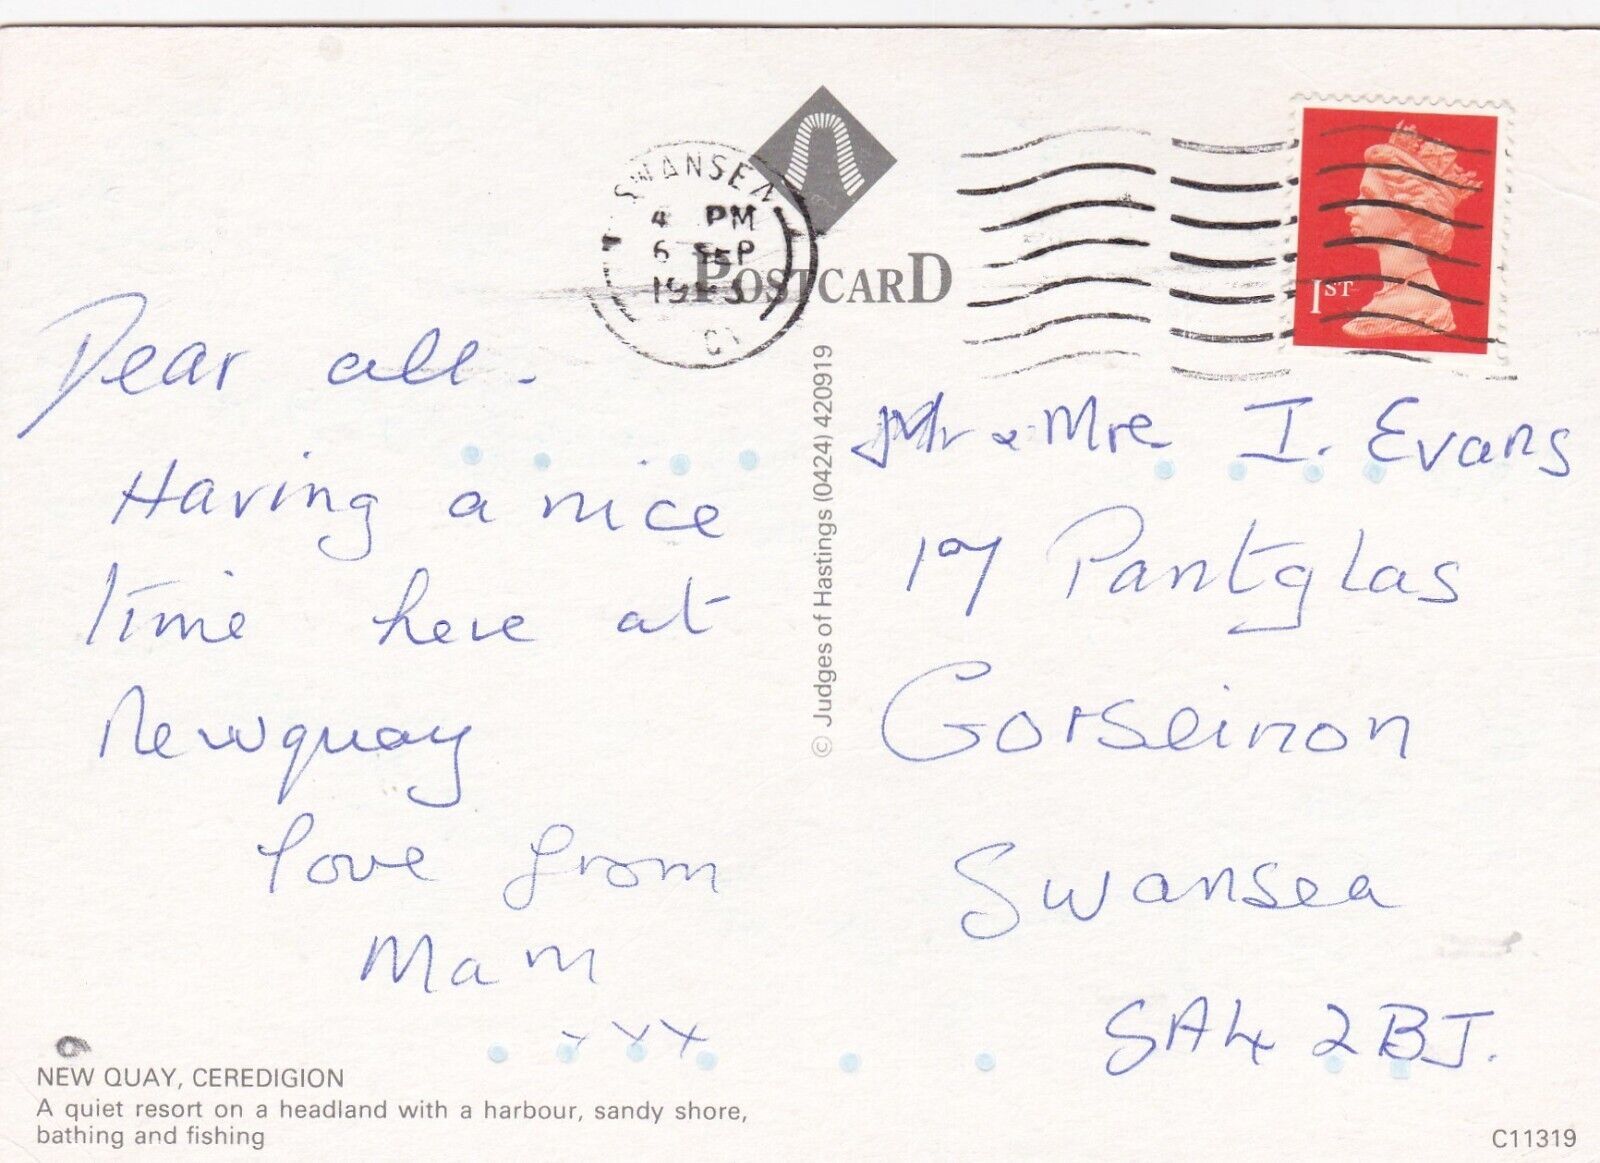 SWANSEA
4 PM
6 SEP
19
POSTCARD
1ST
Dear all.
Having a nice
time here at
Newquay
love from
Mam
xxx
© Judges of Hastings (0424) 420919
Mr & Mrs I. Evans
Pantglas
Gorseinon
Swansea
SA4 2BJ.
NEW QUAY, CEREDIGION
A quiet resort on a headland with a harbour, sandy shore,
bathing and fishing
C11319